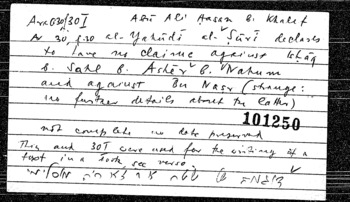 Arab 30/30I Abū Ali Ḥasan b. Khalef
Ar 30, f.30 al-Yahūdī al-Ṣūrī declares
to have no claims against Isḥāq
b. Sahl b. Asher b. Nahum
and against Bu Nasr (strange:
no further details about the latter)
101250
not complete no date preserved
This and 30I were used for the writing of a
text in a book see verso.